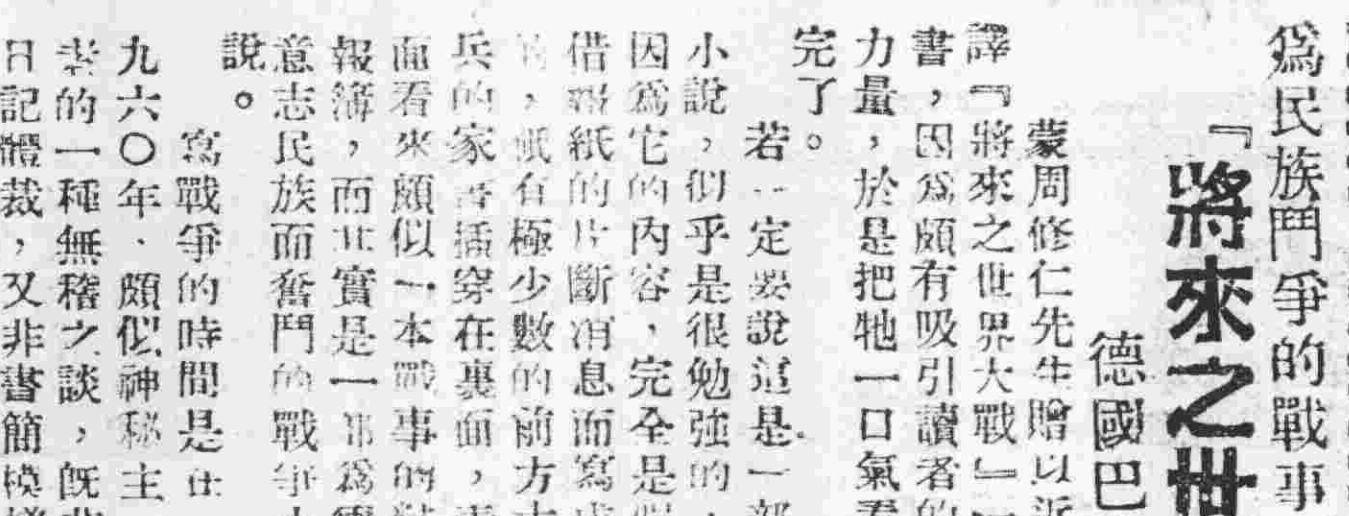 爲民族鬥爭的戰事
『將來之世
德國巴
蒙周修仁先生贈以近
譯『將來之世界大戰』一
書，因爲頗有吸引讀者的
力量，於是把牠一口氣看
完了。
若一定要說這是一部
小說，似乎是很勉強的，
因爲它的內容，完全是
借報紙的片斷消息而寫成
，祇有極少數的前方士
兵的家書插穿在裏面，
面看來頗似一本戰事的
報簿，而其實是一部爲
意志民族而奮鬥的戰爭小
說。
寫戰爭的時間是在
九六〇年，頗似神秘主
者的一種無稽之談，既非
日記體裁，又非書簡模樣